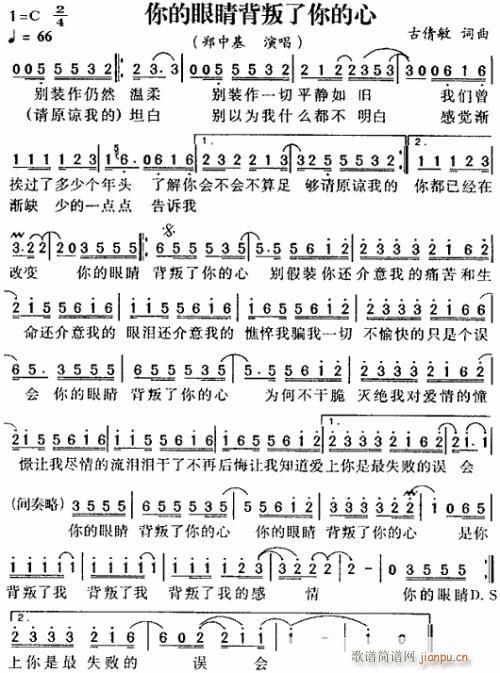 你的眼睛背叛了你的心
1=C 2/4
♩=66
(郑中基 演唱)
古倩敏 词曲
005 5532 | 23· 3 | 005 5532 | 212 2353 | 3 00616
别装作仍然 温柔 别装作一切 平静如 旧 我们曾
(请原谅我的) 坦白 别以为我什么都不 明白 感觉渐
1111123 | 16· 0616 | 1. 2232213 | 3255532 | 2. 1112123
挨过了多少个年头 了解你会不会不算足 够请原谅我的 你都已经在
渐缺 少的一点点 告诉我
3·22 | 203555 | 6555535 | 5·55612
改变 你的眼睛 背叛了你的心 别假装你还介意我的痛苦和生
2155616 | 2155616 | 2155612 | 2333216
命还介意我的 眼泪还介意我的 憔悴我骗我一切 不愉快的只是个误
65· 3555 | 6555535 | 5·55612 | 2333212
会 你的眼睛 背叛了你的心 为何不干脆 灭绝我对爱情的憧
2155616 | 1155616 | 2155612 | 1. 2333216 | 21· 1
憬让我尽情的流泪泪干了不再后悔让我知道爱上你是最失败的误 会
(间奏略) 3555 | 6555535 | 3555 | 6333222 | 1065
你的眼睛 背叛了你的心 你的眼睛 背叛了你的心 是你
11111 | 16111 | 1655123 | 3222 | 2- | 03555
背叛了我 背叛了我 背叛了我的感 情 你的眼睛D.S
2.
2333 | 2161 | 123 | 21·
上你是最 失败的 误 会
歌谱简谱网
jianpu.cn